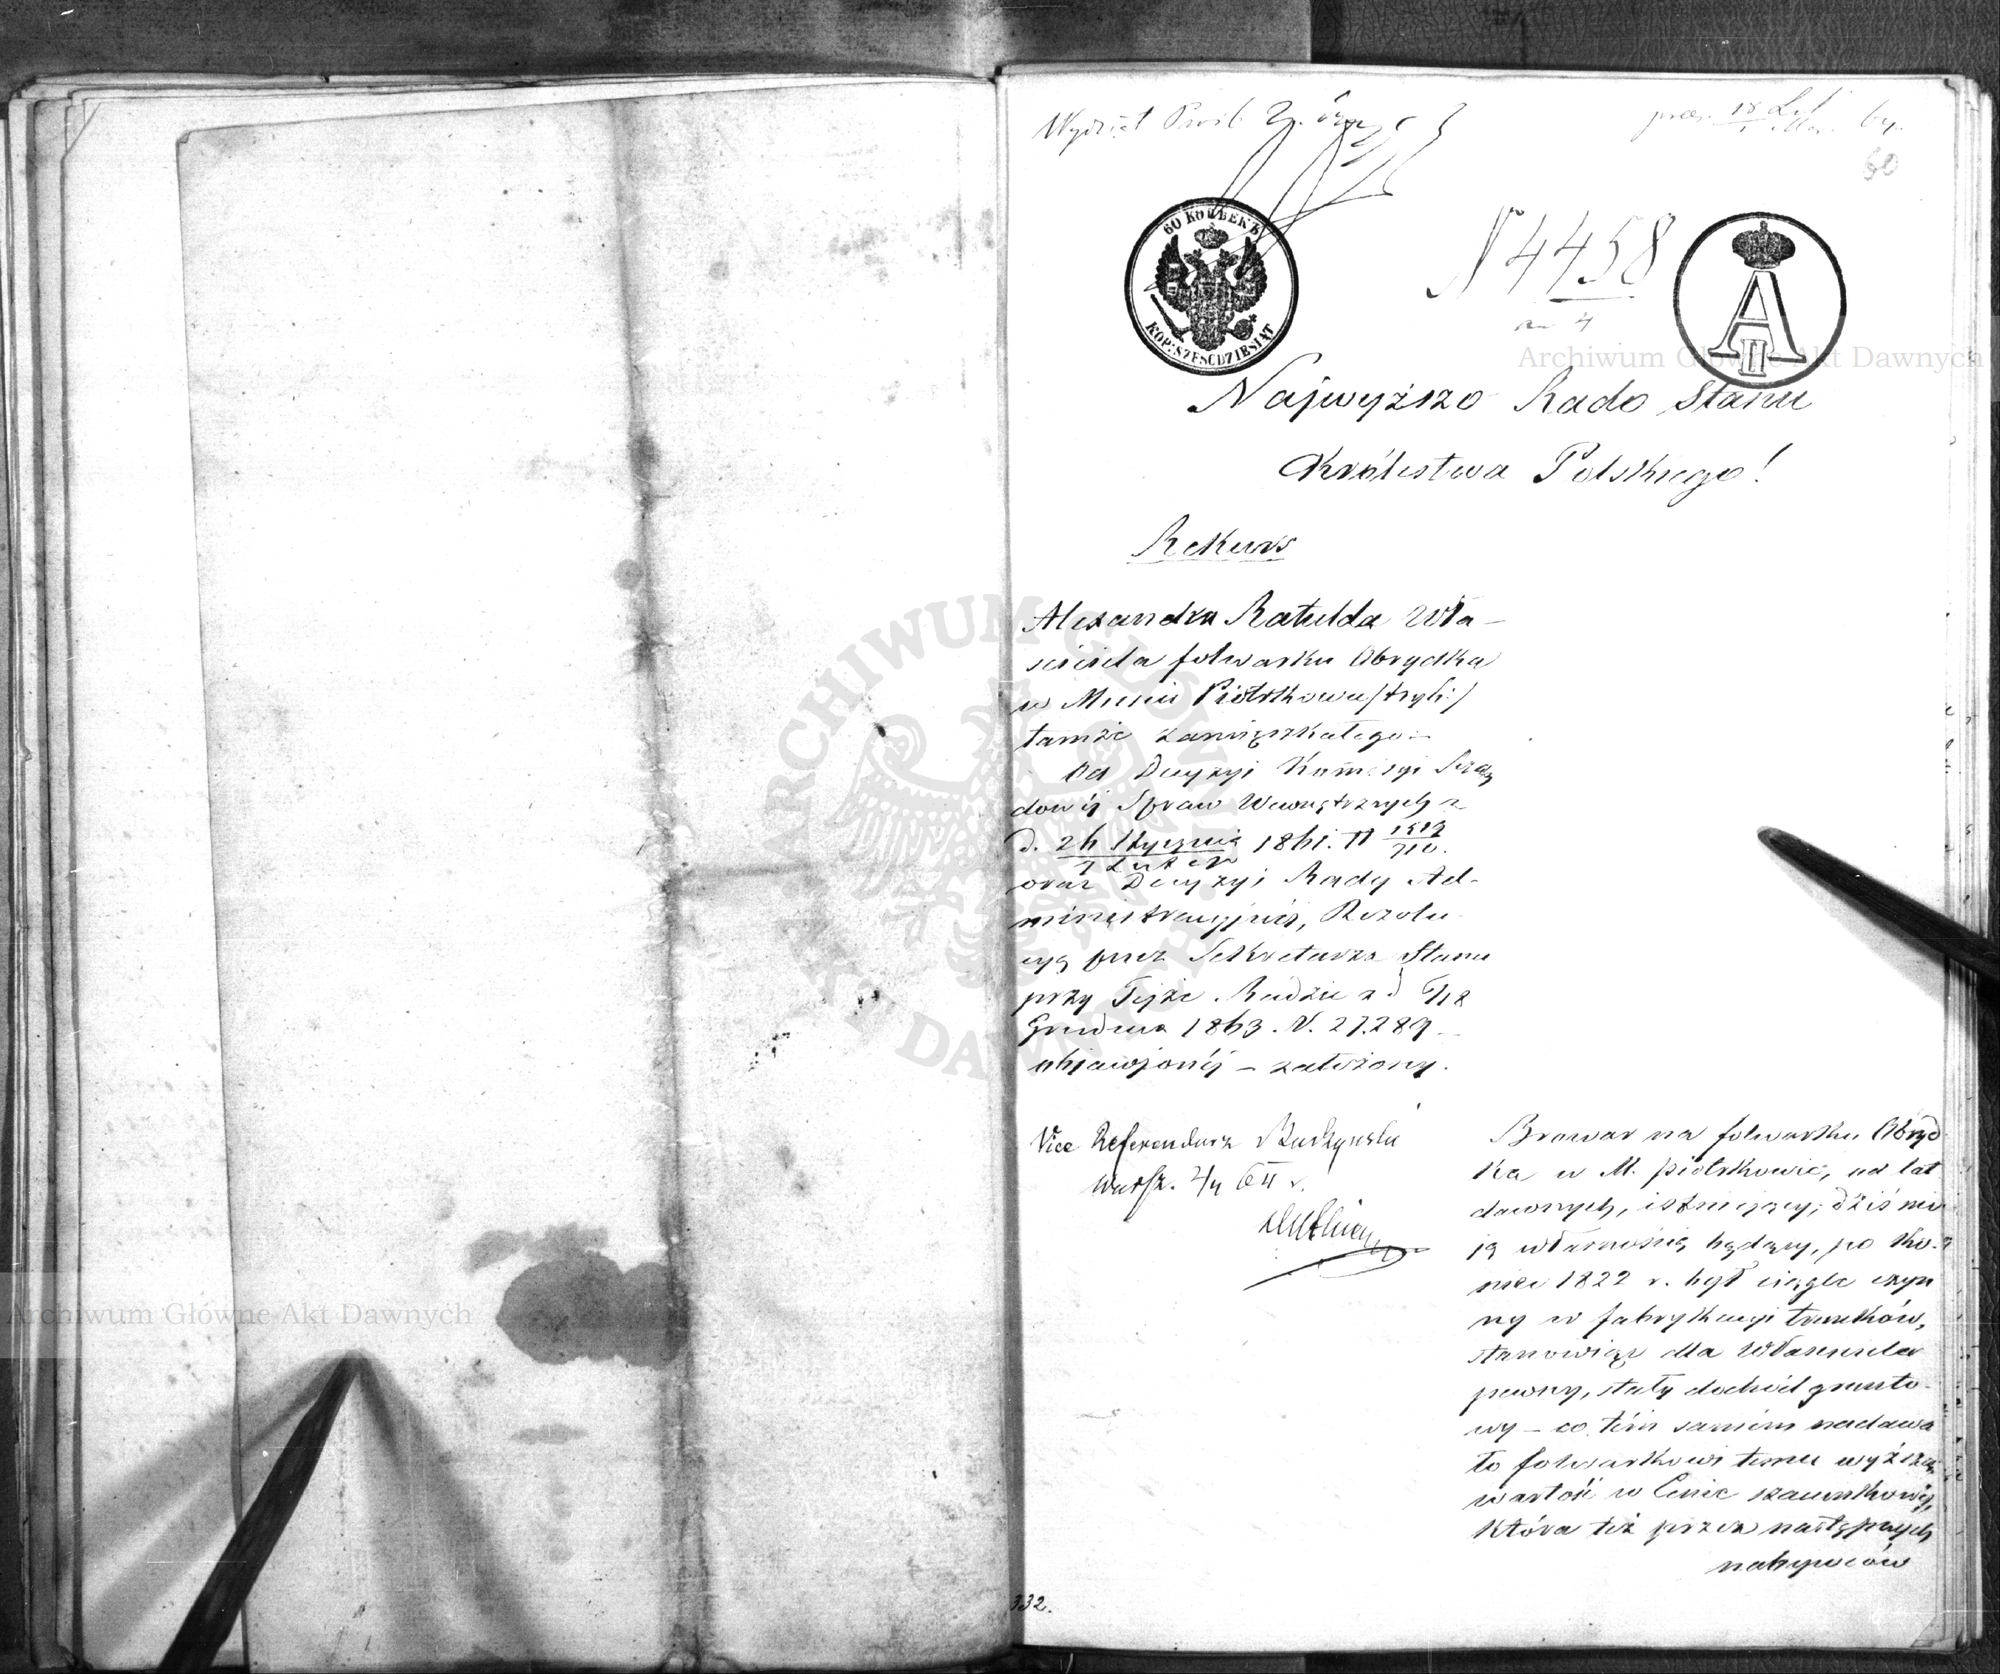 Wydział
prez. 18 Lut
64.
60
60 КОПѢЕКЪ
KOP: SZEŚĆDZIESIĄT
N 4458
A II
Najwyższo Rado Stanu
Królestwa Polskiego!
Rekurs
Alexandra Ratulda Wła-
ściciela folwarku Obrydka
w Mieście Piotrkowie /tryb:/
tamże zamięszkałego
od Decyzyi Kommisyi Rzą
dowéj Spraw Wewnętrznych z
d. 26 Stycznia 1861. N 1519
7 Lutego 710.
oraz Decyzyi Rady Ad-
ministracyjnéj, Rezolu-
cyą przez Sekretarza Stanu
przy Tejże Radzie z d 6/18
Grudnia 1863. N. 27.289
objawionéj – założony.
Vice Referendarz
Warsz. 64 r.
Browar na folwarku Obryd
ka w M. Piotrkowie, od lat
dawnych, istniejący, dziś mo
ją własnością będący, po ko-
niec 1822 r. był ciągle czyn
ny w fabrykacyi trunków,
stanowiąc dla Właściciela
pewny, stały dochód grunto-
wy – co tém samém nadawa
ło folwarkowi temu wyższą
wartość w Cenie szacunkowéj,
która też przez następnych
nabywców
332.
Archiwum Główne Akt Dawnych
Archiwum Główne Akt Dawnych
ARCHIWUM GŁÓWNE AKT DAWNYCH